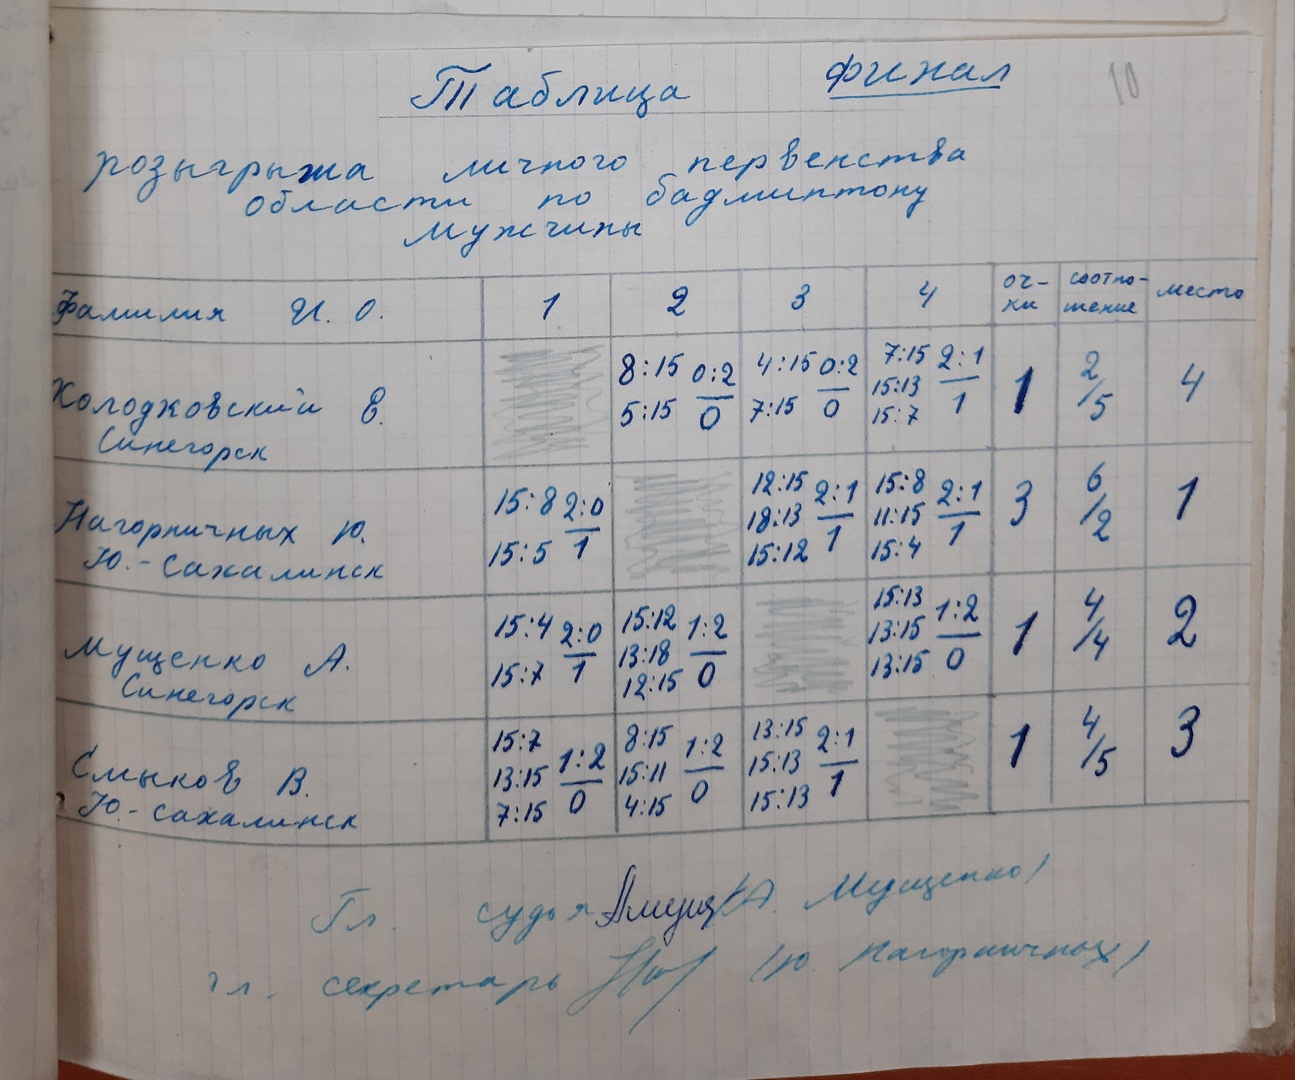 Таблица финал
10
розыгрыжа личного первенства
области по бадминтону
мужчины
Фамилия И. О. 1 2 3 4 оч-ки соотно-шение место
Холодковский Е. Синегорск 8:15 5:15 0:2 0 4:15 7:15 0:2 0 7:15 15:13 15:7 2:1 1 1 2/5 4
Нагорничных Ю. Ю.-Сахалинск 15:8 15:5 2:0 1 12:15 18:13 15:12 2:1 1 15:8 11:15 15:4 2:1 1 3 6/2 1
Мущенко А. Синегорск 15:4 15:7 2:0 1 15:12 13:18 12:15 1:2 0 15:13 13:15 13:15 1:2 0 1 4/4 2
Смыков В. Ю.-Сахалинск 15:7 13:15 7:15 1:2 0 8:15 15:11 4:15 1:2 0 13:15 15:13 15:13 2:1 1 1 4/5 3
Гл. судья /А. Мущенко/
гл. секретарь /Ю Нагорничных/